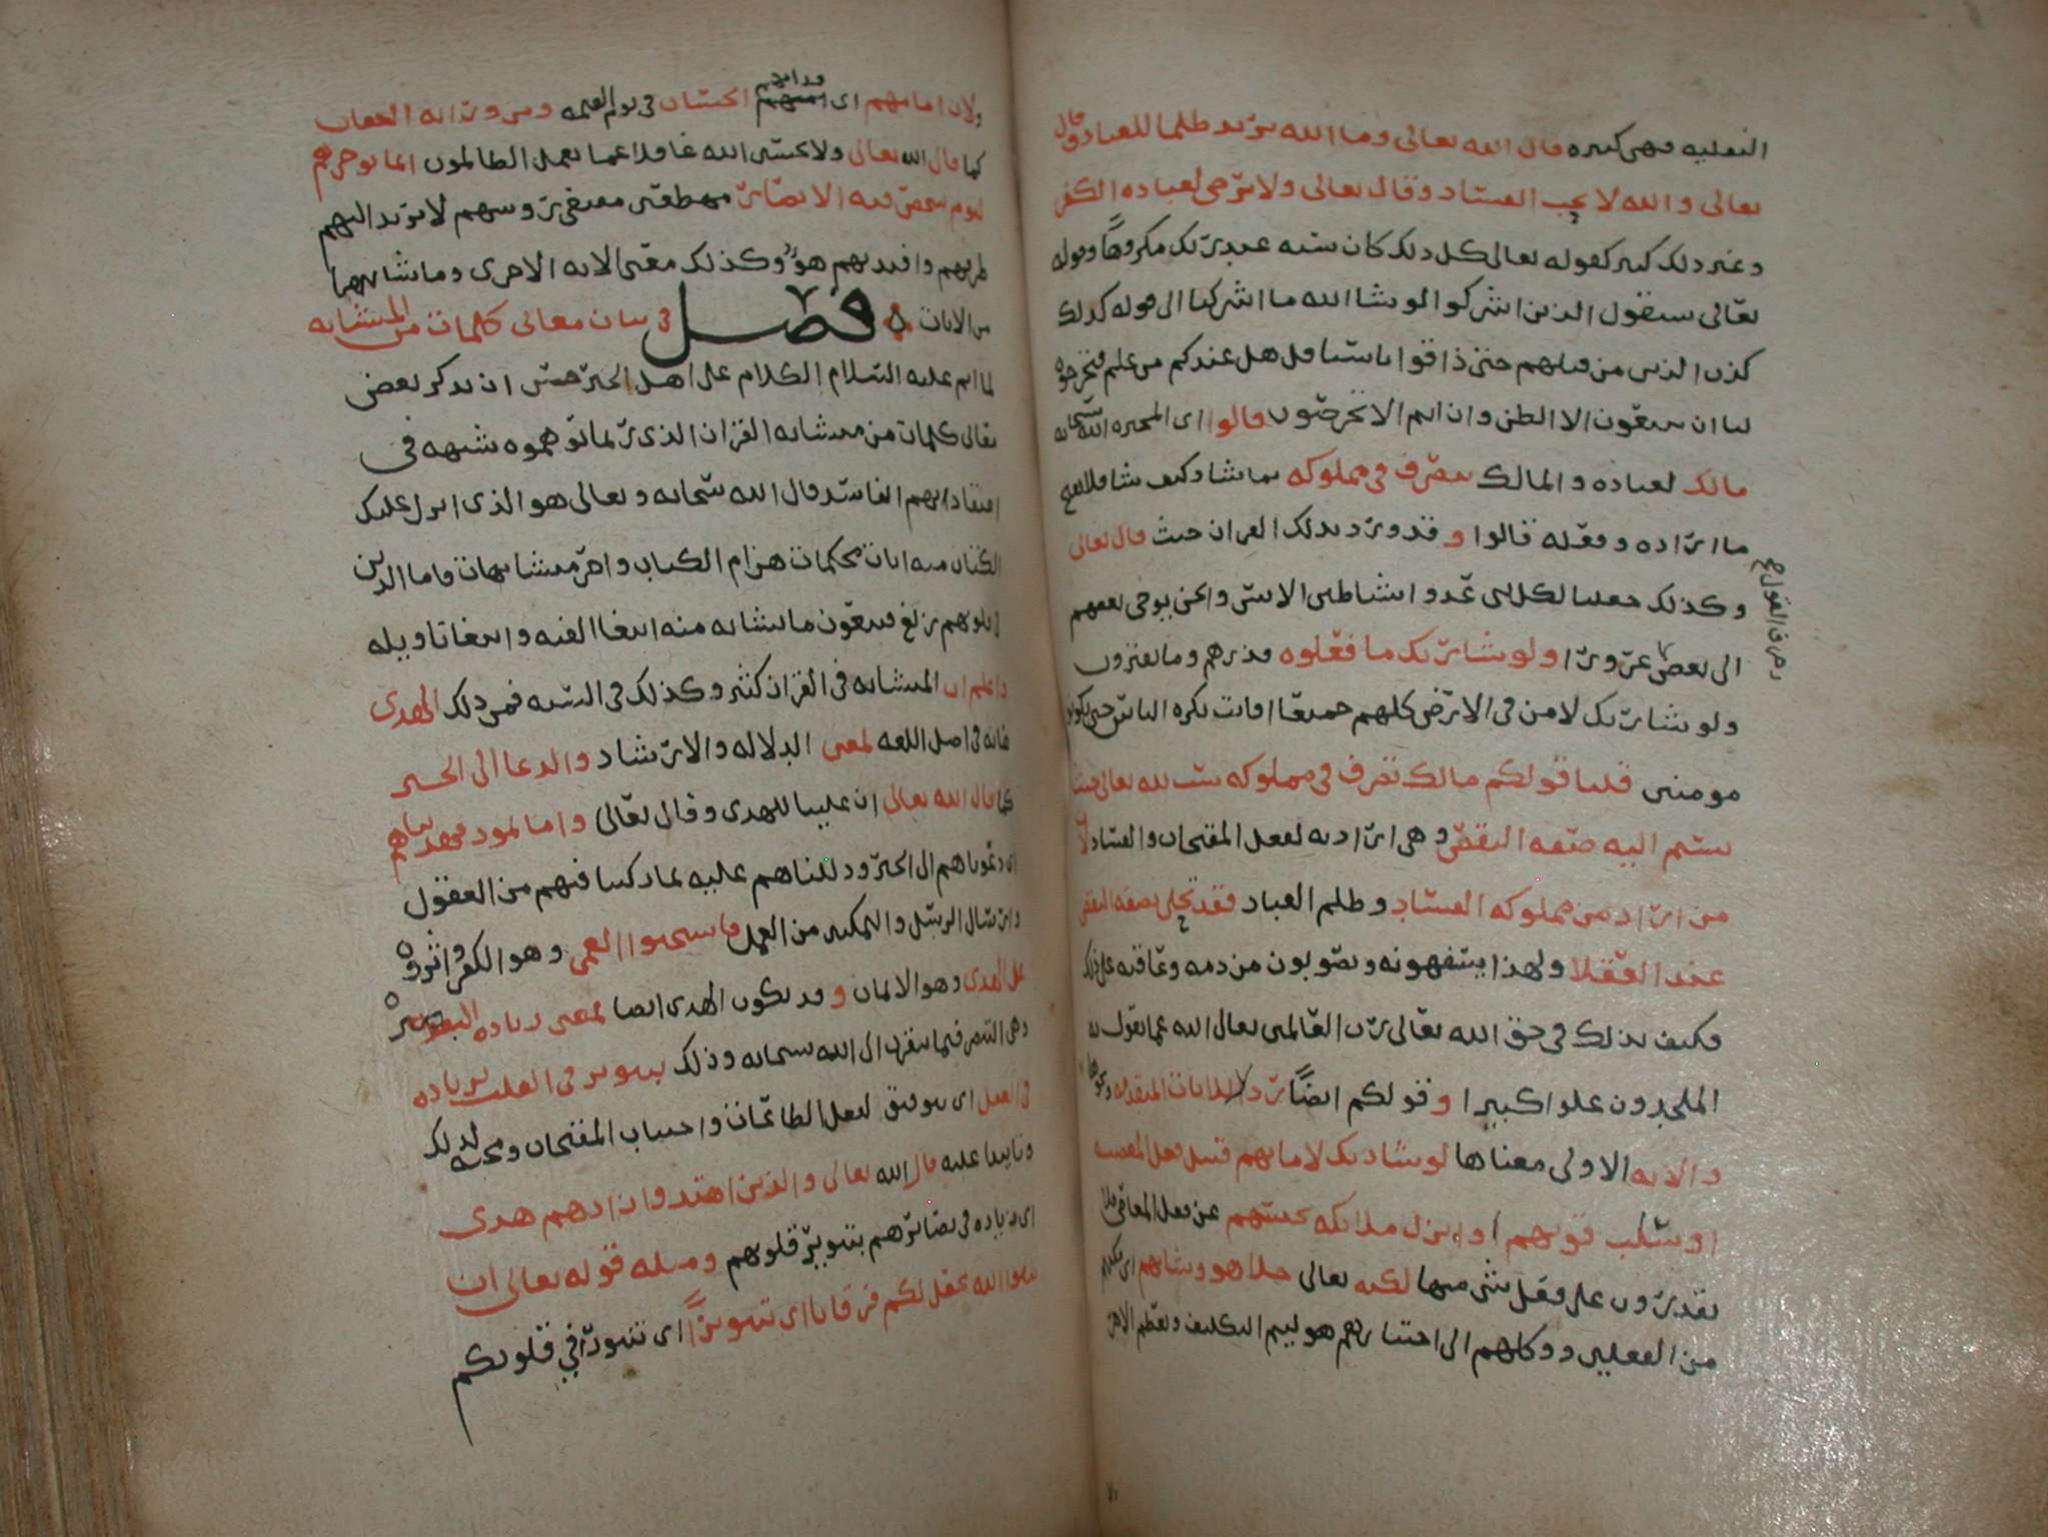 النقليه فهى كثيره قال الله تعالى وما الله يريد ظلما للعباد وقال
تعالى والله لا يحب الفساد وقال تعالى ولا يرضى لعباده الكفر
وغير ذلك كثير كقوله تعالى كل ذلك كان سيئه عند ربك مكروها وقوله
تعالى سيقول الذين اشركوا لو شا الله ما اشركنا الى قوله كذلك
كذب الذين من قبلهم حتى ذاقوا باسنا قل هل عندكم من علم فتخرجوه
لنا ان تتبعون الا الظن وان انتم الا تخرصون قالوا اى المجبره الله سبحانه
مالك لعباده والمالك يتصرف فى مملوكه بما شا وكيف شا فلا يقبح
ما اراده وفعله قالوا وقد ورد بذلك القران حيث قال تعالى
وكذلك جعلنا لكل نبى عدوا شياطين الانس والجن يوحى بعضهم
الى بعض زخرف القول غرورا ولو شا ربك ما فعلوه فذرهم وما يفترون
ولو شا ربك لامن من فى الارض كلهم جميعا افانت تكره الناس حتى يكونوا
مومنين قلنا قولكم مالك تصرف فى مملوكه سب لله تعالى حيث
نسبتم اليه صفه النقص وهى ارادته لفعل المقبحات والفساد لان
من اراد من مملوكه الفساد وظلم العباد فقد تحلى بصفه النقص
عند العقلا ولهذا يسفهونه ويصوبون من ذمه وعاقبه على ذلك
فكيف بذلك فى حق الله تعالى رب العالمين تعالى الله عما يقول به
الملحدون علوا كبيرا وقولكم ايضا رد للايات المتقدمه ونحوها
والايه الاولى معناها لو شا ربك لاماتهم قبل فعل المعصيه
او سلب قوتهم او ينزل ملائكه تحبسهم عن فعل المعاصى فلا
يقدرون على فعل شى منها لكنه تعالى خلاهم وشانهم اى مكنهم
من الفعلين ووكلهم الى اختيارهم هو ليتم التكليف ويعظم الاجر
ولان امامهم اى قدامهم الحساب فى يوم القيمه ومن ورائه العقاب
كما قال الله تعالى ولا تحسبن الله غافلا عما يعمل الظالمون انما يوخرهم
ليوم تشخص فيه الابصار مهطعين مقنعى روسهم لا يرتد اليهم
طرفهم وافئدتهم هوا وكذلك معنى الايه الاخرى وما شابهها
من الايات فصل فى بيان معانى كلمات من المتشابه
لما اتم عليه السلام الكلام على اهل الجبر حسن ان يذكر بعض
معانى كلمات من متشابه القران الذى ربما توهموه شبهه فى
اعتقاداتهم الفاسد قال الله سبحانه وتعالى هو الذى انزل عليك
الكتاب منه ايات محكمات هن ام الكتاب واخر متشابهات فاما الذين
فى قلوبهم زيغ فيتبعون ما تشابه منه ابتغا الفتنه وابتغا تاويله
واعلم ان المتشابه فى القران كثير وكذلك فى السنه فمن ذلك الهدى
فانه فى اصل اللغه لمعنى الدلاله والارشاد والدعا الى الخير
كما قال الله تعالى ان علينا للهدى وقال تعالى واما ثمود فهديناهم
اى دعوناهم الى الخير ودللناهم عليه بما ركبنا فيهم من العقول
وارسال الرسل والتمكين من العمل فاستحبوا العمى وهو الكفر واثروه
على الهدى وهو الايمان وقد يكون الهدى ايضا لمعنى زياده البصيره
وهى التبصر فيما يقرب الى الله سبحانه وذلك بتنوير فى القلب بزياده
فى العقل اى توفيق لفعل الطاعات واجتناب المقبحات ومحبه لذلك
وتاييدا عليه قال الله تعالى والذين اهتدوا زادهم هدى
اى زياده فى بصائرهم بتنوير قلوبهم ومثله قوله تعالى ان
تتقوا الله يجعل لكم فرقانا اى تنويرا اى تنورا فى قلوبكم